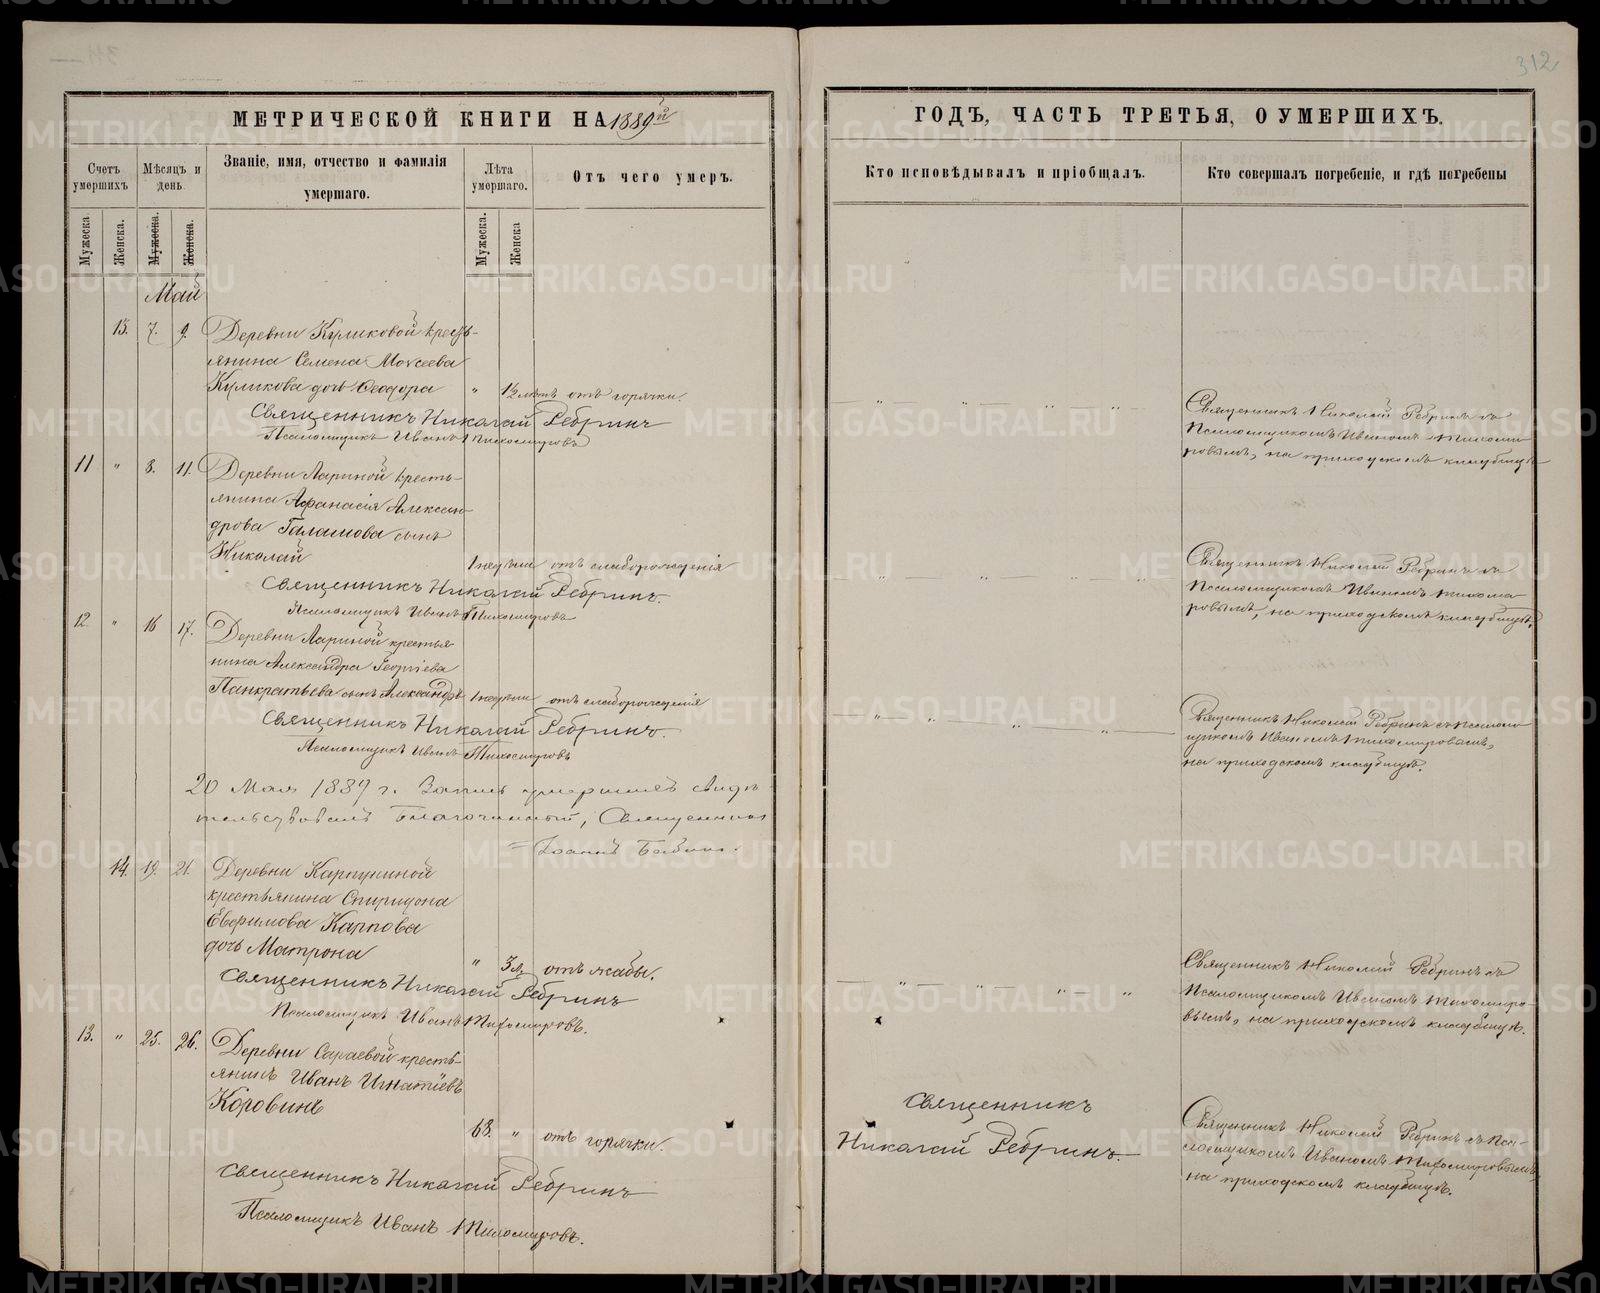 312
МЕТРИЧЕСКОЙ КНИГИ НА 1889й
ГОДЪ, ЧАСТЬ ТРЕТЬЯ, О УМЕРШИХЪ.
Счетъ умершихъ
Мѣсяцъ и день.
Званіе, имя, отчество и фамилія умершаго.
Лѣта умершаго.
Отъ чего умеръ.
Кто исповѣдывалъ и пріобщалъ.
Кто совершалъ погребеніе, и гдѣ погребены
Мужеска
Женска.
Мужеска.
Женска.
Мужеска.
Женска
Май
13. 7. 9. Деревни Куликовой кресть-
янина Семена Моѵсеева
Куликова дочь Ѳеодора " 1½ лѣтъ отъ горячки.
Священникъ Николай Ребринъ
Псаломщикъ Иванъ Тихомировъ
Священникъ Николай Ребринъ съ
Псаломщикомъ Иваномъ Тихоми
ровымъ, на приходскомъ кладбищѣ
11 " 8. 11. Деревни Лариной кресть-
янина Аѳанасія Алексан-
дрова Галашова сынъ
Николай 1 недѣли отъ слаборожденія
Священникъ Николай Ребринъ.
Псаломщикъ Иванъ Тихомировъ
Священникъ Николай Ребринъ съ
Псаломщикомъ Иваномъ Тихоми
ровымъ, на приходскомъ кладбищѣ.
12. " 16 17. Деревни Лариной крестья-
нина Александра Георгіева
Панкратьева сынъ Александръ 1 недѣли отъ слаборожденія
Священникъ Николай Ребринъ.
Псаломщикъ Иванъ Тихомировъ
Священникъ Николай Ребринъ съ псалом
щикомъ Иваномъ Тихомировымъ,
на приходскомъ кладбищѣ.
20 Мая 1889 г. Запись умершихъ свидѣ
тельствовалъ Благочинный, Священникъ
Іоаннъ
14. 19. 21. Деревни Карпушиной
крестьянина Спиридона
Евфимова Карпова
дочь Матрона " 3 л. отъ жабы.
Священникъ Николай Ребринъ
Псаломщикъ Иванъ Тихомировъ.
Священникъ Николай Ребринъ съ
Псаломщикомъ Иваномъ Тихомиро-
вымъ, на приходскомъ кладбищѣ.
13. " 25. 26. Деревни Сараевой кресть-
янинъ Иванъ Игнатіевъ
Коровинъ
68. " отъ горячки.
Священникъ Николай Ребринъ
Псаломщикъ Иванъ Тихомировъ.
Священникъ
Николай Ребринъ.
Священникъ Николай Ребринъ съ Пса-
ломщикомъ Иваномъ Тихомировымъ,
на приходскомъ кладбищѣ.
METRIKI.GASO-URAL.RU